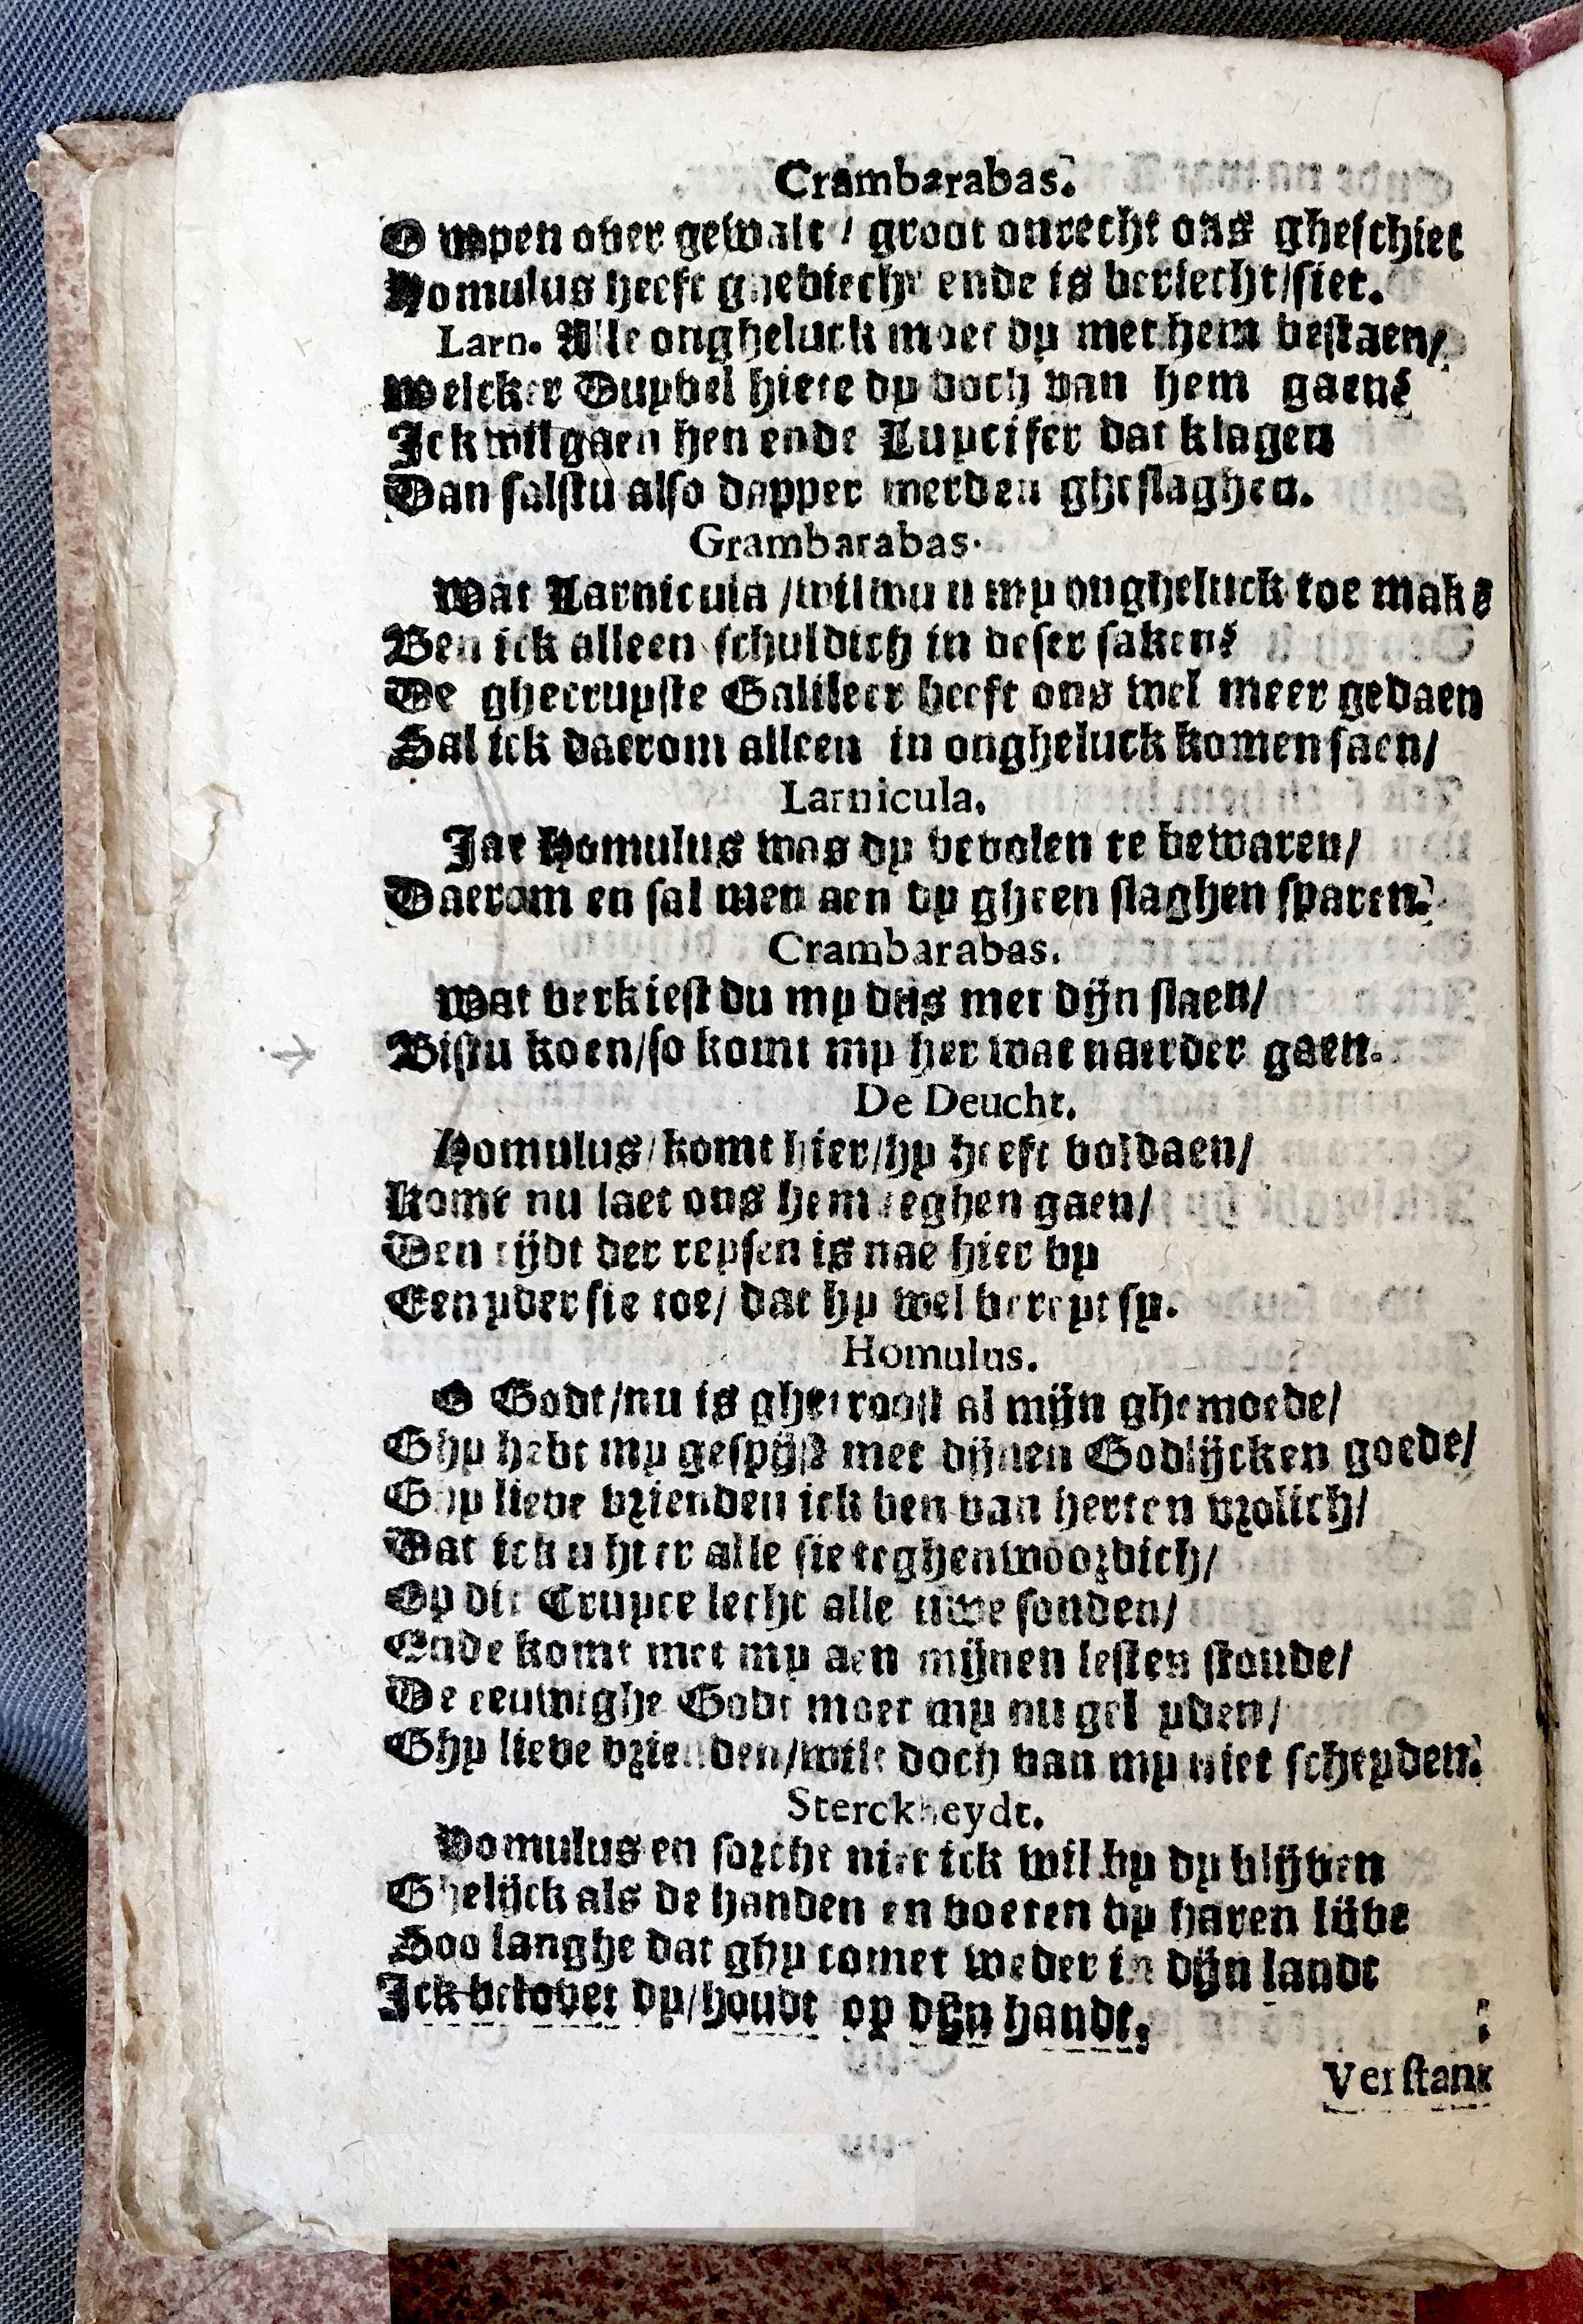 Crambarabas.
O wapen over gewalt / groot onrecht ons gheschiet
Homulus heeft ghebiecht ende is berlecht/siet.
Larn. Alle ongheluck moet dy met hem bestaen/
Welcker Duyvel hiete dy doch van hem gaen?
Ick wil gaen hen ende Luycifer dat klagen
Dan salstu also dapper werden gheslaghen.
Grambarabas.
Wat Larnicula /wil wu u my ongheluck toe makē
Ben ick alleen schuldich in deser saken?
De ghecruyste Galileer heeft ons wel meer gedaen
Sal ick daerom alleen in ongheluck komen saen/
Larnicula.
Jae Homulus was dy bevolen te bewaren/
Daerom en sal men aen dy gheen slaghen sparen.
Crambarabas.
Wat verkiest du my dus met dijn slaen/
Bistu koen/so komt my her wat naerder gaen.
De Deucht.
Homulus/komt hier/hy heeft voldaen/
Komt nu laet ons hem teghen gaen/
Den tijdt der reysen is nae hier by
Een yder sie toe/ dat hy wel bereyt sy.
Homulus.
O Godt/nu is ghetroost al mijn ghemoede/
Ghy hebt my gespijst met dijnen Godlijcken goede/
Ghy lieve vrienden ick ben van herten vrolich/
Dat ick u hier alle sie teghenwoordich/
Op dit Cruyce lecht alle uwe sonden/
Ende komt met my aen mijnen lesten stonde/
De eeuwighe Godt moet my nu gel yden/
Ghy lieve vrienden/wilt doch van my niet scheyden.
Sterckheydt.
Homulus en sorcht niet ick wil by dy blijven
Ghelijck als de handen en voeten by haren lijve
Soo langhe dat ghy comet weder in dijn landt
Ick belovet dy/houdt op dijn handt.
Verstant